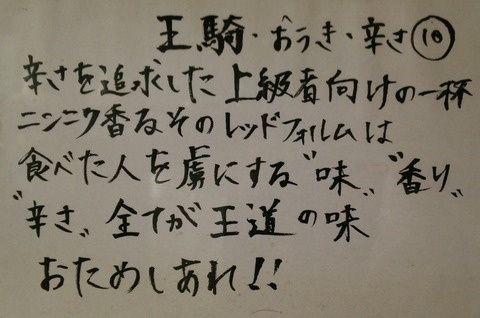 王騎・おうき・辛さ⑩
辛さを追求した上級者向けの一杯
ニンニク香るそのレッドフォルムは
食べた人を虜にする〝味〟〝香り〟
〝辛さ〟全てが王道の味
おためしあれ!!